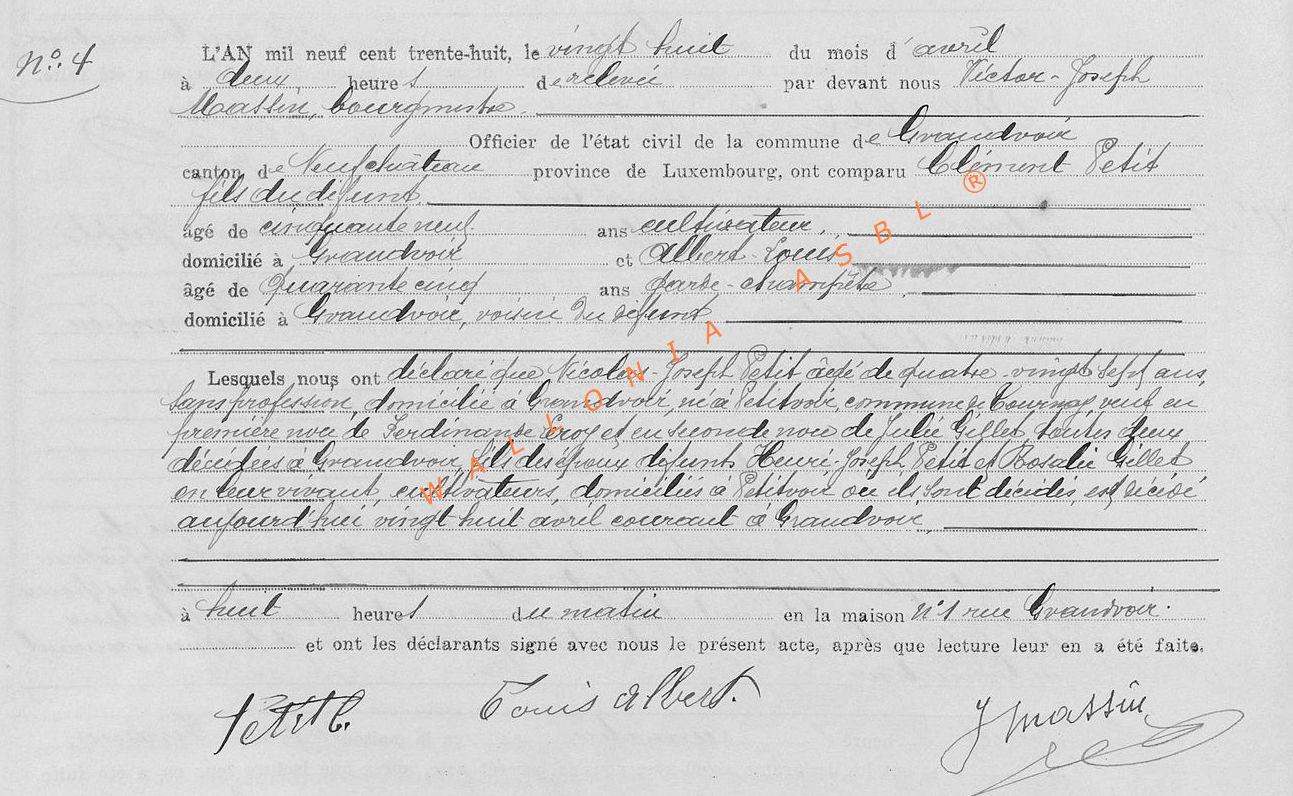 N°. 4
L'AN mil neuf cent trente-huit, le vingt huit du mois d'avril
à deux heures de relevée par devant nous Victor-Joseph
Massin, bourgmestre.
Officier de l'état civil de la commune de Grandvoir
canton de Neufchâteau province de Luxembourg, ont comparu Clément Petit
fils du défunt
âgé de cinquante neuf ans cultivateur,
domicilié à Grandvoir et Albert Louis
âgé de Quarante cinq ans Garde-champêtre,
domicilié à Grandvoir, voisin du défunt
Lesquels nous ont déclaré que Nicolas-Joseph Petit âgé de quatre-vingt sept ans,
sans profession, domicilié à Grandvoir, né à Petitvoir, commune de Tournay, veuf en
première noce de Ferdinande et en seconde noce de Julie Gillet, toutes deux
décédées à Grandvoir, fils des époux défunts Henri-Joseph Petit et Rosalie Gillet
en leur vivant, cultivateurs, domiciliés à Petitvoir où ils sont décédés, est décédé
aujourd'hui vingt huit avril courant à Grandvoir,
à huit heures du matin en la maison n° 1 rue Grandvoir.
et ont les déclarants signé avec nous le présent acte, après que lecture leur en a été faite.
Petit C. Louis Albert. J Massin
WALLONIA ASBL ®